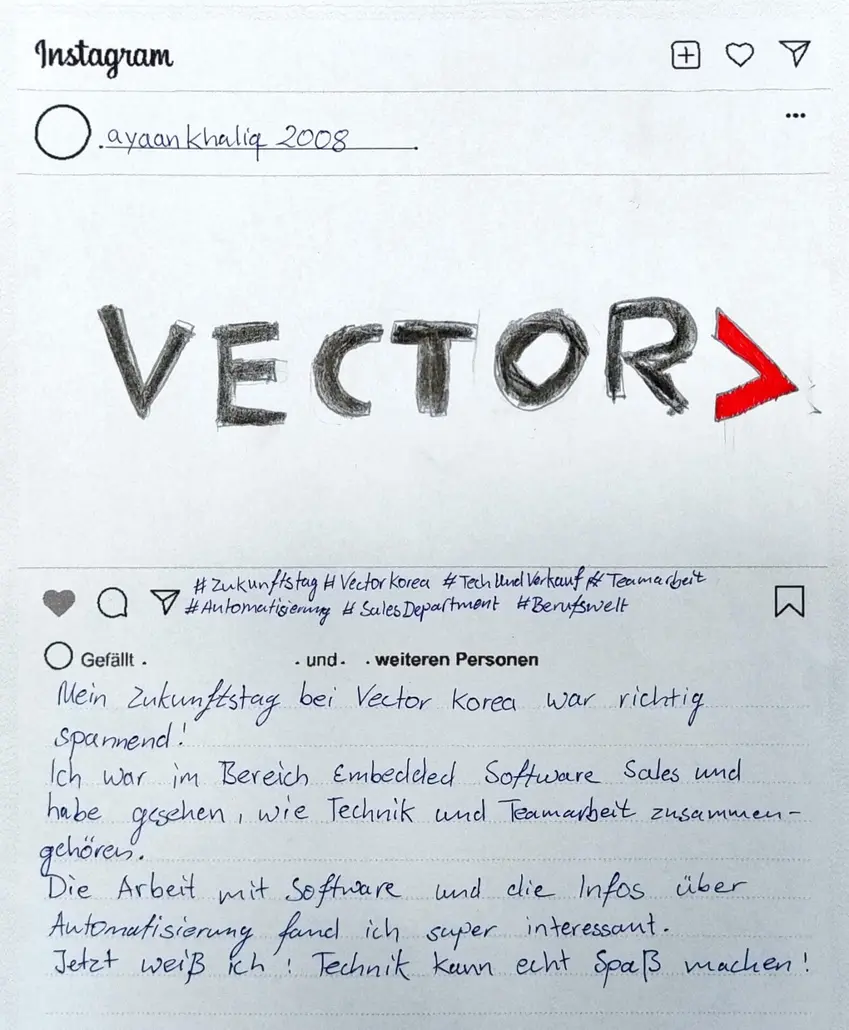 Instagram
ayaankhaliq 2008
VECTOR
#Zukunftstag # Vector Korea #Tech Und Verkauf # Teamarbeit
#Automatisierung # Sales Department #Berufswelt
Gefällt . . und . . weiteren Personen
Mein Zukunftstag bei Vector Korea war richtig
spannend!
Ich war im Bereich Embedded Software Sales und
habe gesehen, wie Technik und Teamarbeit zusammen-
gehören.
Die Arbeit mit Software und die Infos über
Automatisierung fand ich super interessant.
Jetzt weiß ich : Technik kann echt Spaß machen!